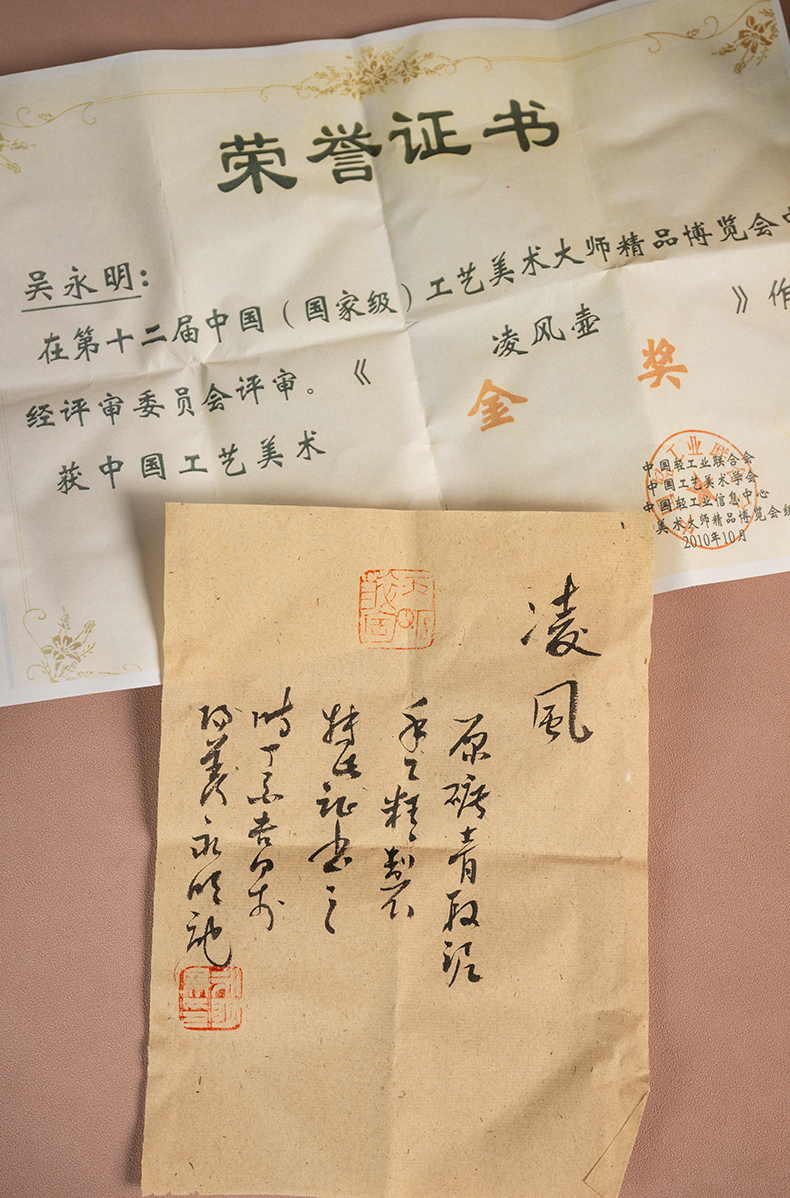 荣誉证书
吴永明:
在第十二届中国(国家级)工艺美术大师精品博览会中
凌风壶 》作
经评审委员会评审。《
金奖
获中国工艺美术
中国轻工业联合会
中国工艺美术学会
中国轻工业信息中心
美术大师精品博览会组
2010年10月
凌風
原礦青段泥
手工精製
特此証書之
時丁亥吉日於
陽羨永明記